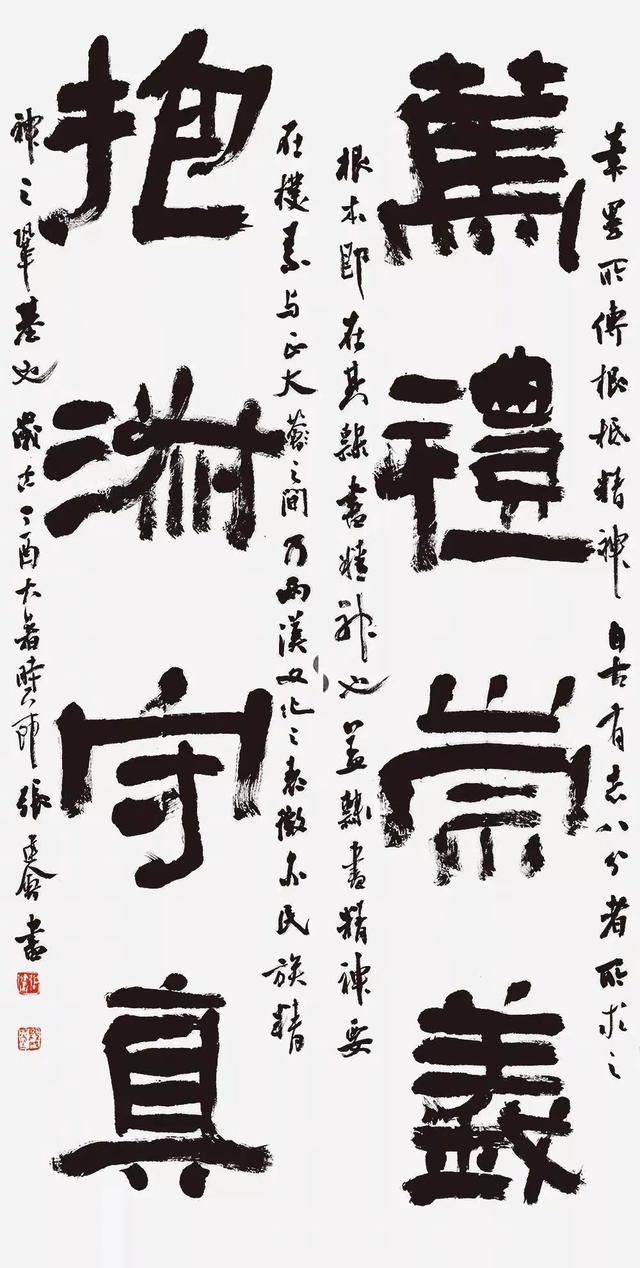 篤禮崇義
抱淑守真
所傳根柢精神自古有志八分者所求之
根本即在其隸書精神也蓋隸書精神要
在樸素與正大之間乃兩漢文化之表徵亦民族精
神之鞏基也歲丁酉大暑時張建會書